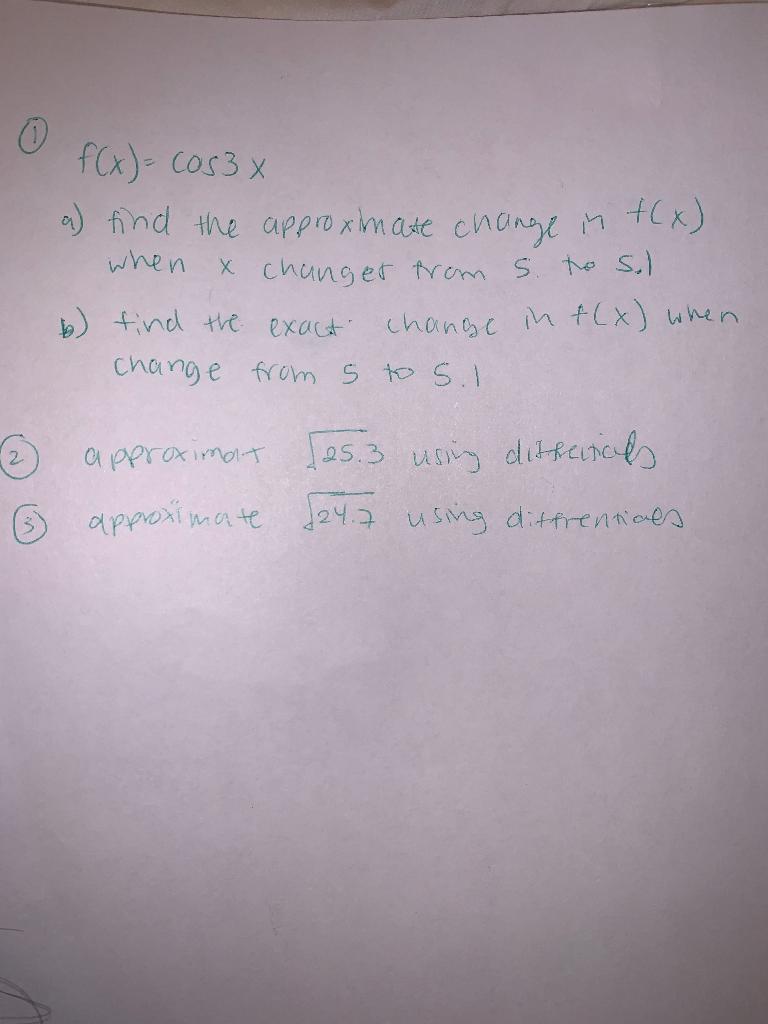 ①
f(x)= cos3x
a) find the approximate change in f(x)
when x changes from 5. to 5.1
b) find the exact change in f(x) when
change from 5 to 5.1
② approximat √25.3 using differitals
③ approximate √24.7 using diffrentials